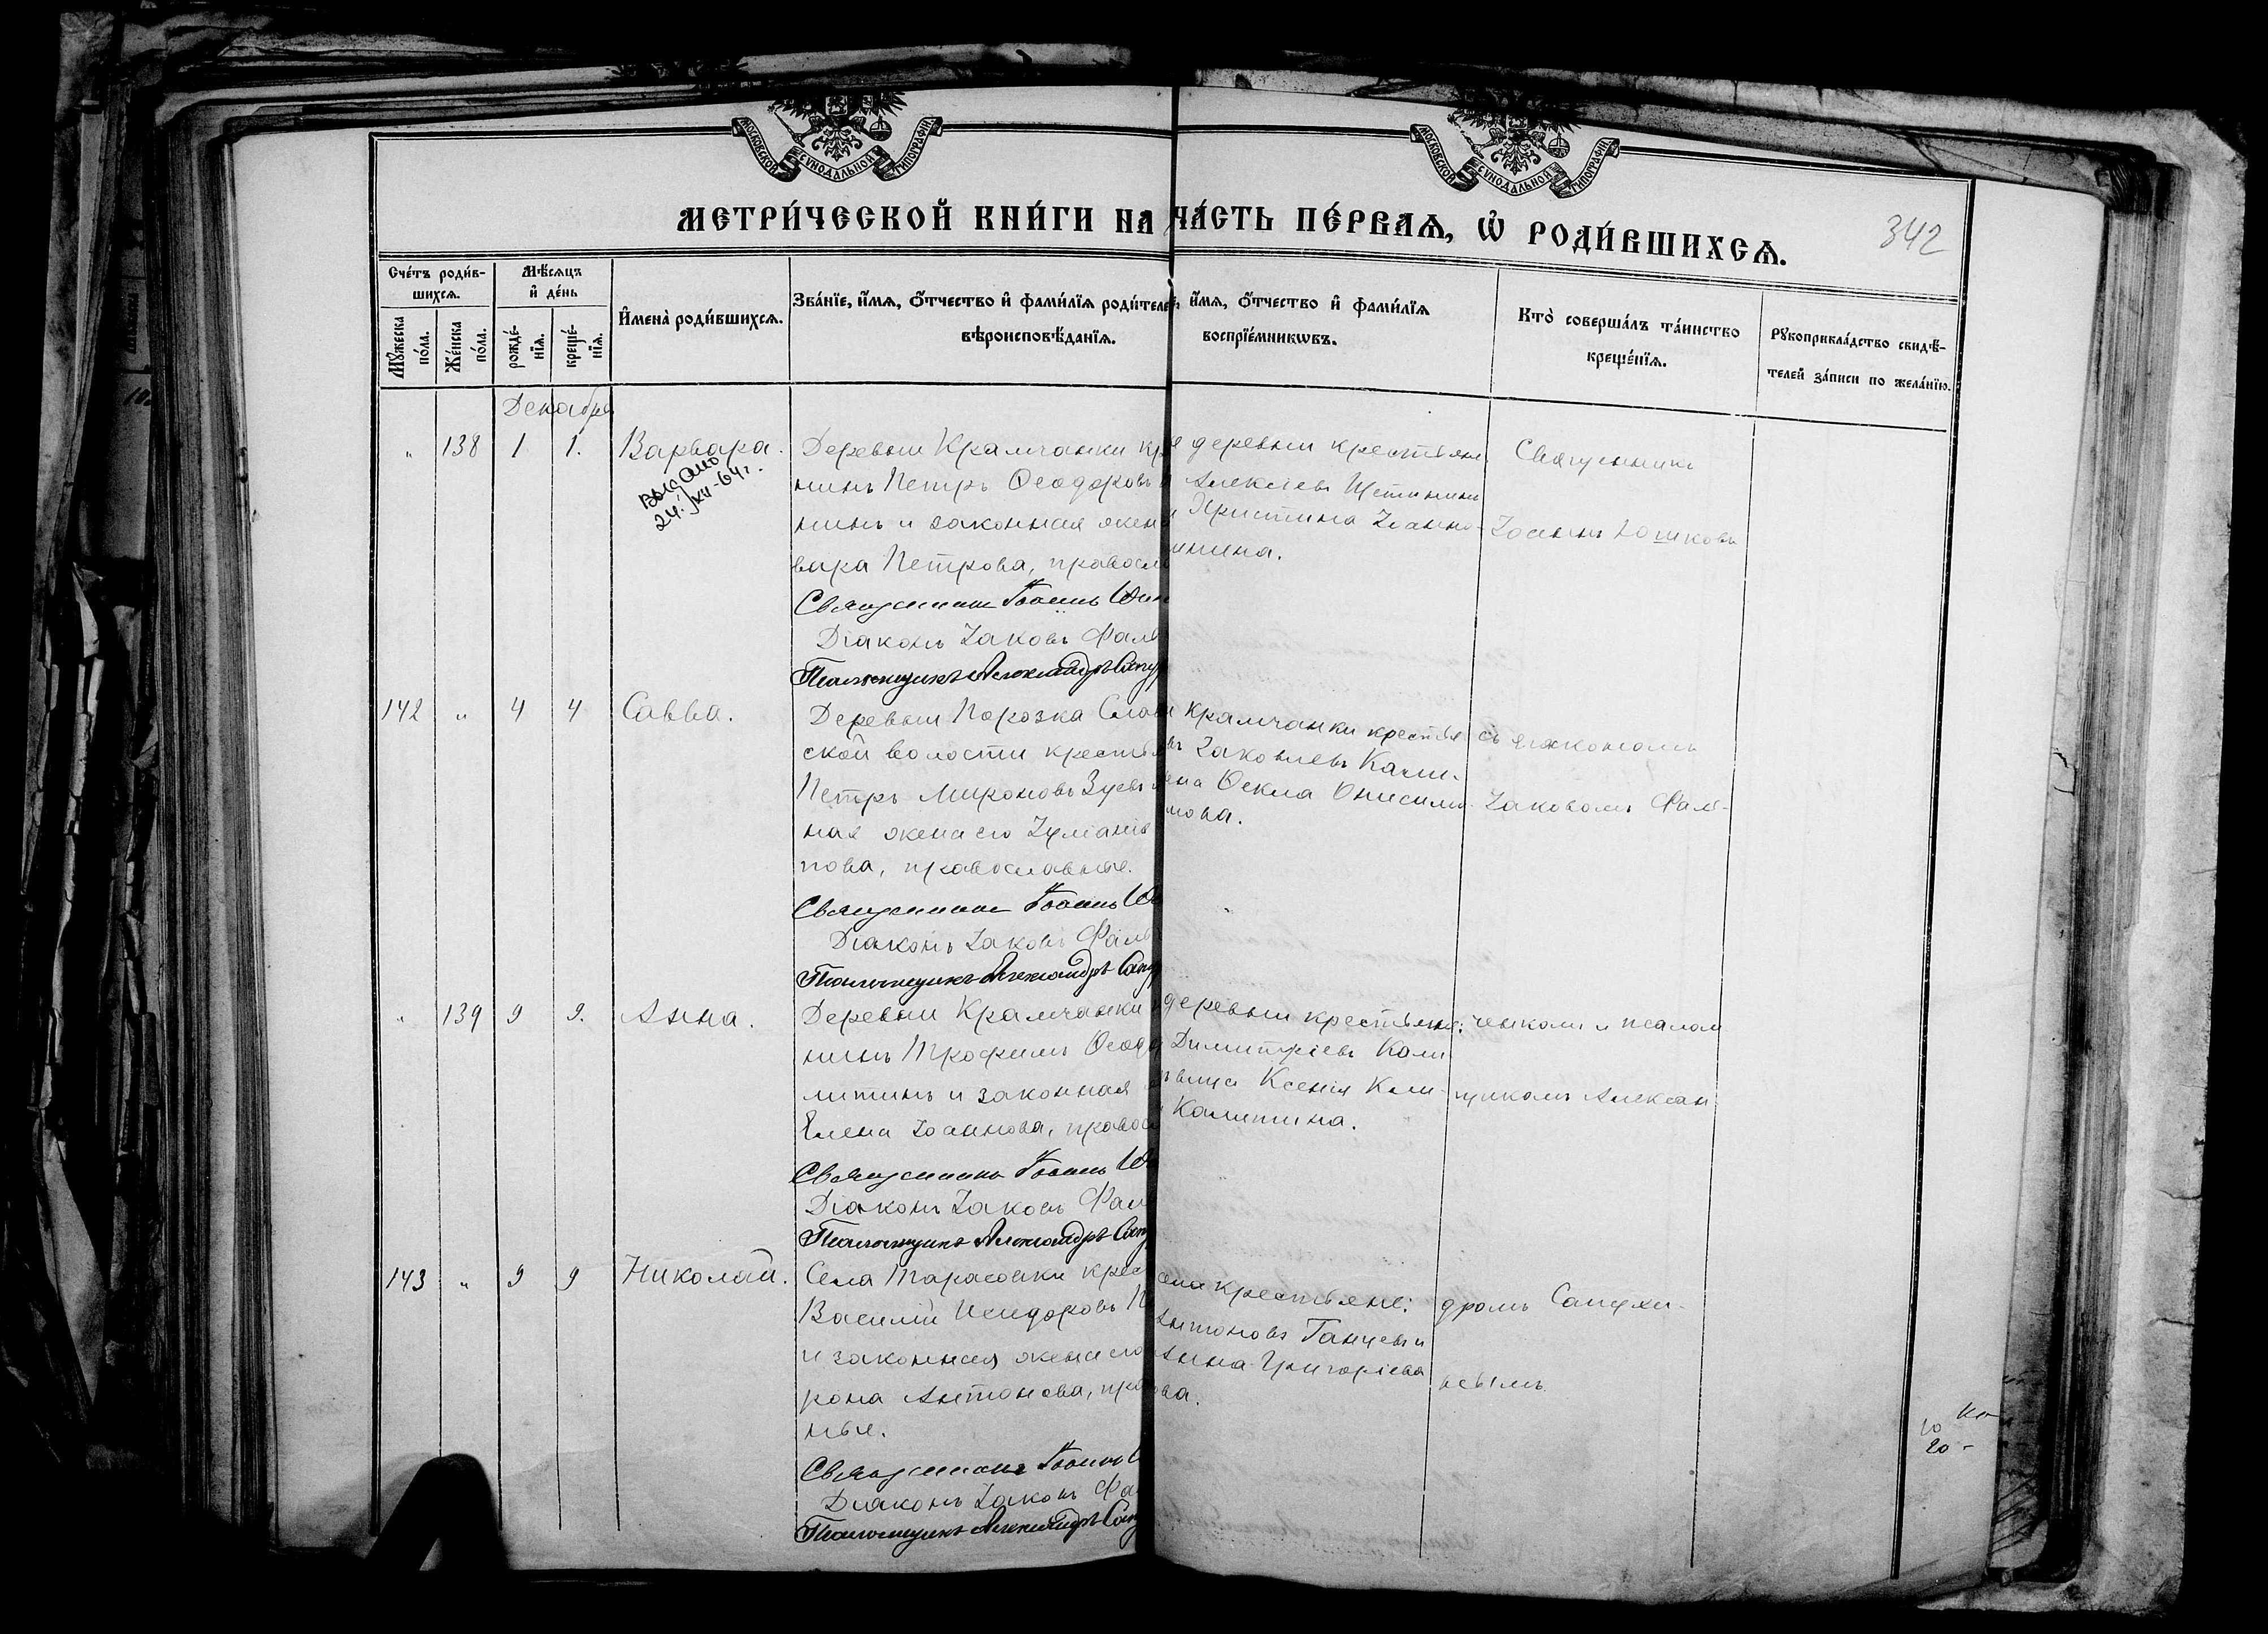 МОСКОВСКОЙ СУНОДАЛЬНОЙ ТИПОГРАФІИ
МОСКОВСКОЙ СУНОДАЛЬНОЙ ТИПОГРАФІИ
МЕТРИ́ЧЕСКОЙ КНИ́ГИ НА ЧА́СТЬ ПЕ́РВАѦ, Ѽ РОДИ́ВШИХСѦ.
342
Сче́тъ роди́в-
шихсѧ.
Мꙋ́жеска по́ла.
Же́нска по́ла.
Мѣ́сѧцъ
и҆ де́нь
рожде́-
нїѧ.
креще́-
нїѧ.
И҆мена̀ роди́вшихсѧ.
Зва́нїе, и҆́мѧ, ѻ҆́тчество и҆ фами́лїѧ роди́теле
вѣроисповѣ́данїѧ.
и҆́мѧ, ѻ҆́тчество и҆ фами́лїѧ
воспрїе́мникѡвъ.
Кто̀ соверша́лъ та́инство
креще́нїѧ.
Рꙋкоприкла́дство свидѣ́-
телей за́писи по жела́нїю.
Декабря
" 138 1 1. Варвара.
Выдано
24/XII-64г.
Деревни Крамчанки кр
нинъ Петръ Ѳеодоровъ
нинъ и законная жена
вара Петрова, правосл
Священникъ Іоаннъ Юш
Діаконъ Іаковъ Фал
Псаломщикъ Александръ Сапу
деревни крестьян
Алексіевъ Щетинин
Христина Іоанно-
инина.
Священникъ
Іоаннъ Юшковъ
142 " 4 4 Савва.
Деревни Порозка Слав
ской волости крестья
Петръ Мироновъ Зуевъ
ная жена его Іуліанія
пова, православные.
Священникъ Іоаннъ Ю
Діаконъ Іаковъ Фал
Псаломщикъ Александръ Сапу
Крамчанки крестья
Іаковлевъ Кали-
на Ѳекла Онисим
мова.
съ діакономъ
Іаковомъ Фаль-
" 139 9 9. Анна.
Деревни Крамчанки
нинъ Трофимъ Ѳеод
литинъ и законная
Елена Іоаннова, правос
Священникъ Іоаннъ Ю
Діаконъ Іаковъ Фал
Псаломщикъ Александръ Сапу
деревни крестьяне:
Димитріевъ Кали
вица Ксенія Кали-
Калитина.
ченкомъ и псалом
щикомъ Алексан-
143 " 9 9 Николай.
Села Тарасовки крес
Василій Исидоровъ П
и законная жена его
рона Антонова, пра
ные.
Священникъ Іоаннъ
Діаконъ Іаковъ Фа
Псаломщикъ Александръ Сапу
села крестьяне:
Антоновъ Ганцевъ и
Анна Григоріева
ва.
дромъ Сапухи-
нымъ
20 -